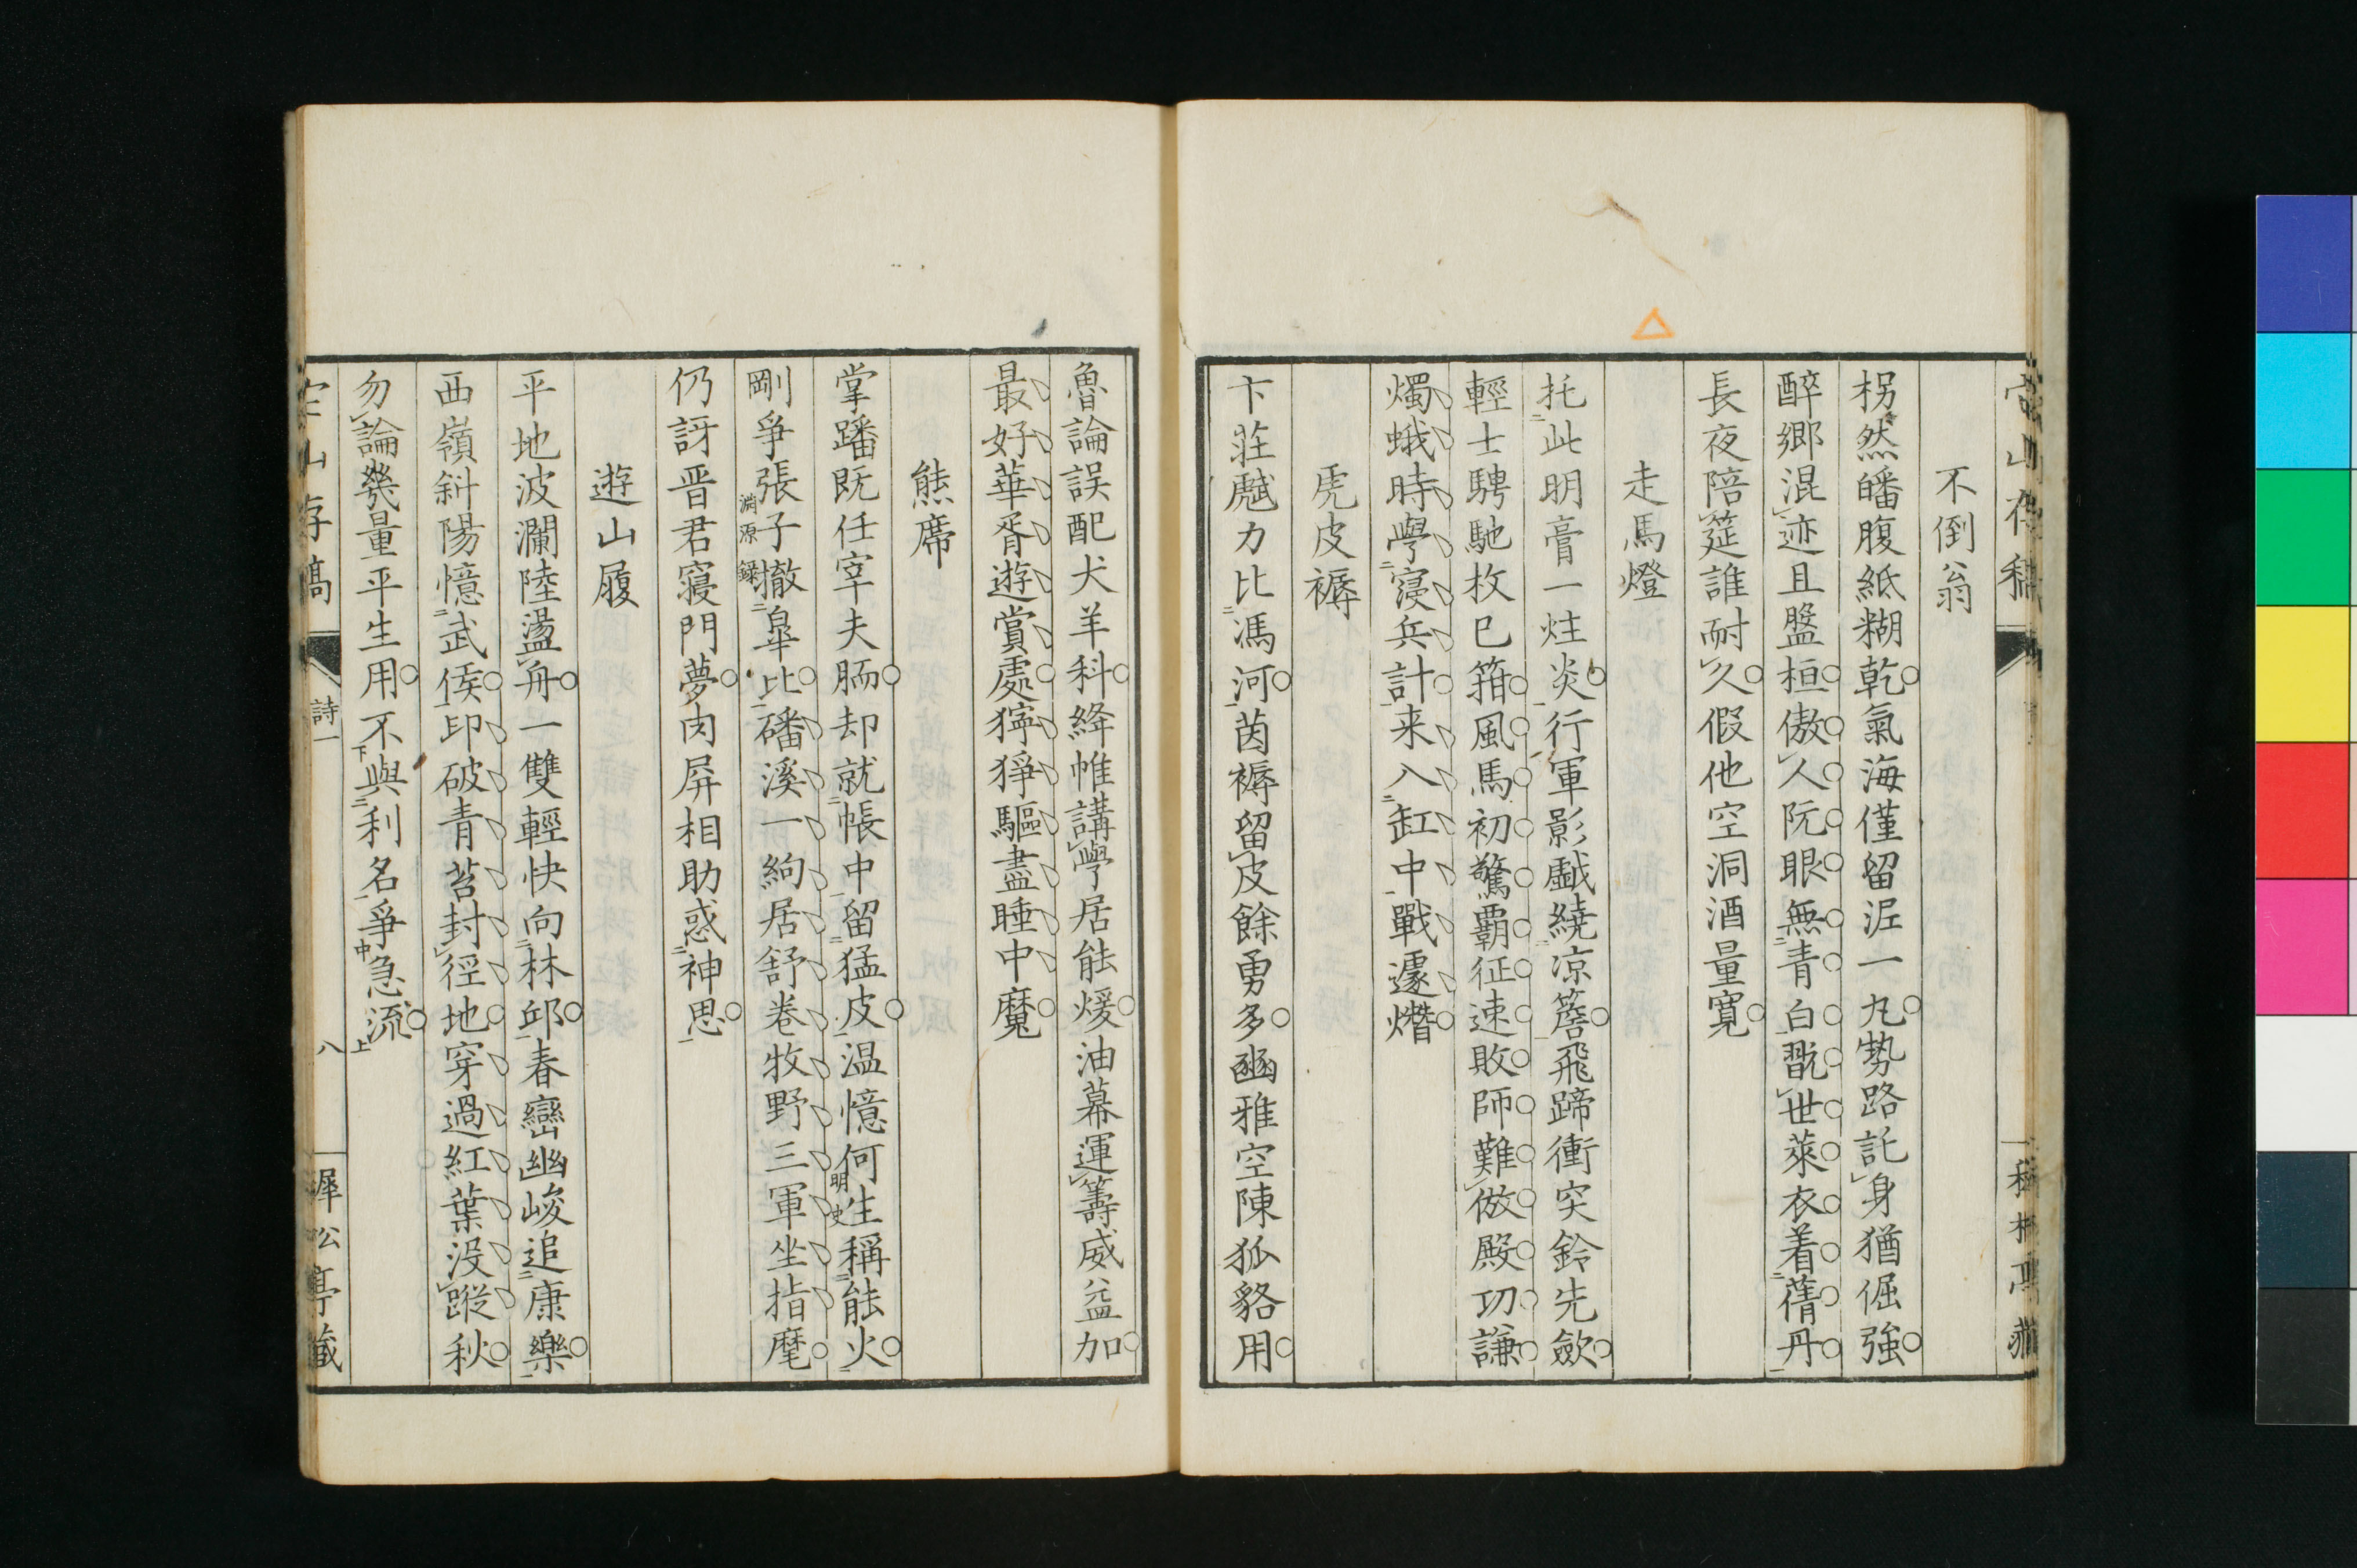 不倒翁
拐然皤腹紙糊乾氣海僅留泥一丸勢路託身猶倔強
醉鄉混迹且盤桓傲人阮眼無青白翫世萊衣着蒨丹
長夜陪筵誰耐久假他空洞酒量寬
走馬燈
托此明膏一炷炎行軍影戯繞凉簷飛蹄衝突鈴先歛
輕士騁馳枚已箝風馬初驚覇征速敗師難倣殿功謙
燭蛾時學寢兵計来八缸中戰遽熸
虎皮褥
卞莊虣力比馮河茵褥留皮餘勇多豳雅空陳狐貉用
魯論誤配犬羊科絳帷講學居能煖油幕運籌威益加
最好華胥遊賞處獰猙驅盡睡中魔
熊席
掌蹯既任宰夫胹却就帳中留猛皮温憶何生稱能火
明史
剛爭張子撤皐比磻溪一絇居舒卷牧野三軍坐指麾
淵源録
仍訝晋君寢門夢肉屏相助惑神思
遊山履
平地波瀾陸盪舟一雙輕快向林邱春巒幽峻追康樂
西嶺斜陽憶武侯印破青苔封徑地穿過紅葉没蹤秋
勿論幾量平生用不與利名爭急流
山存稿
詩一
八
犀公亭藏